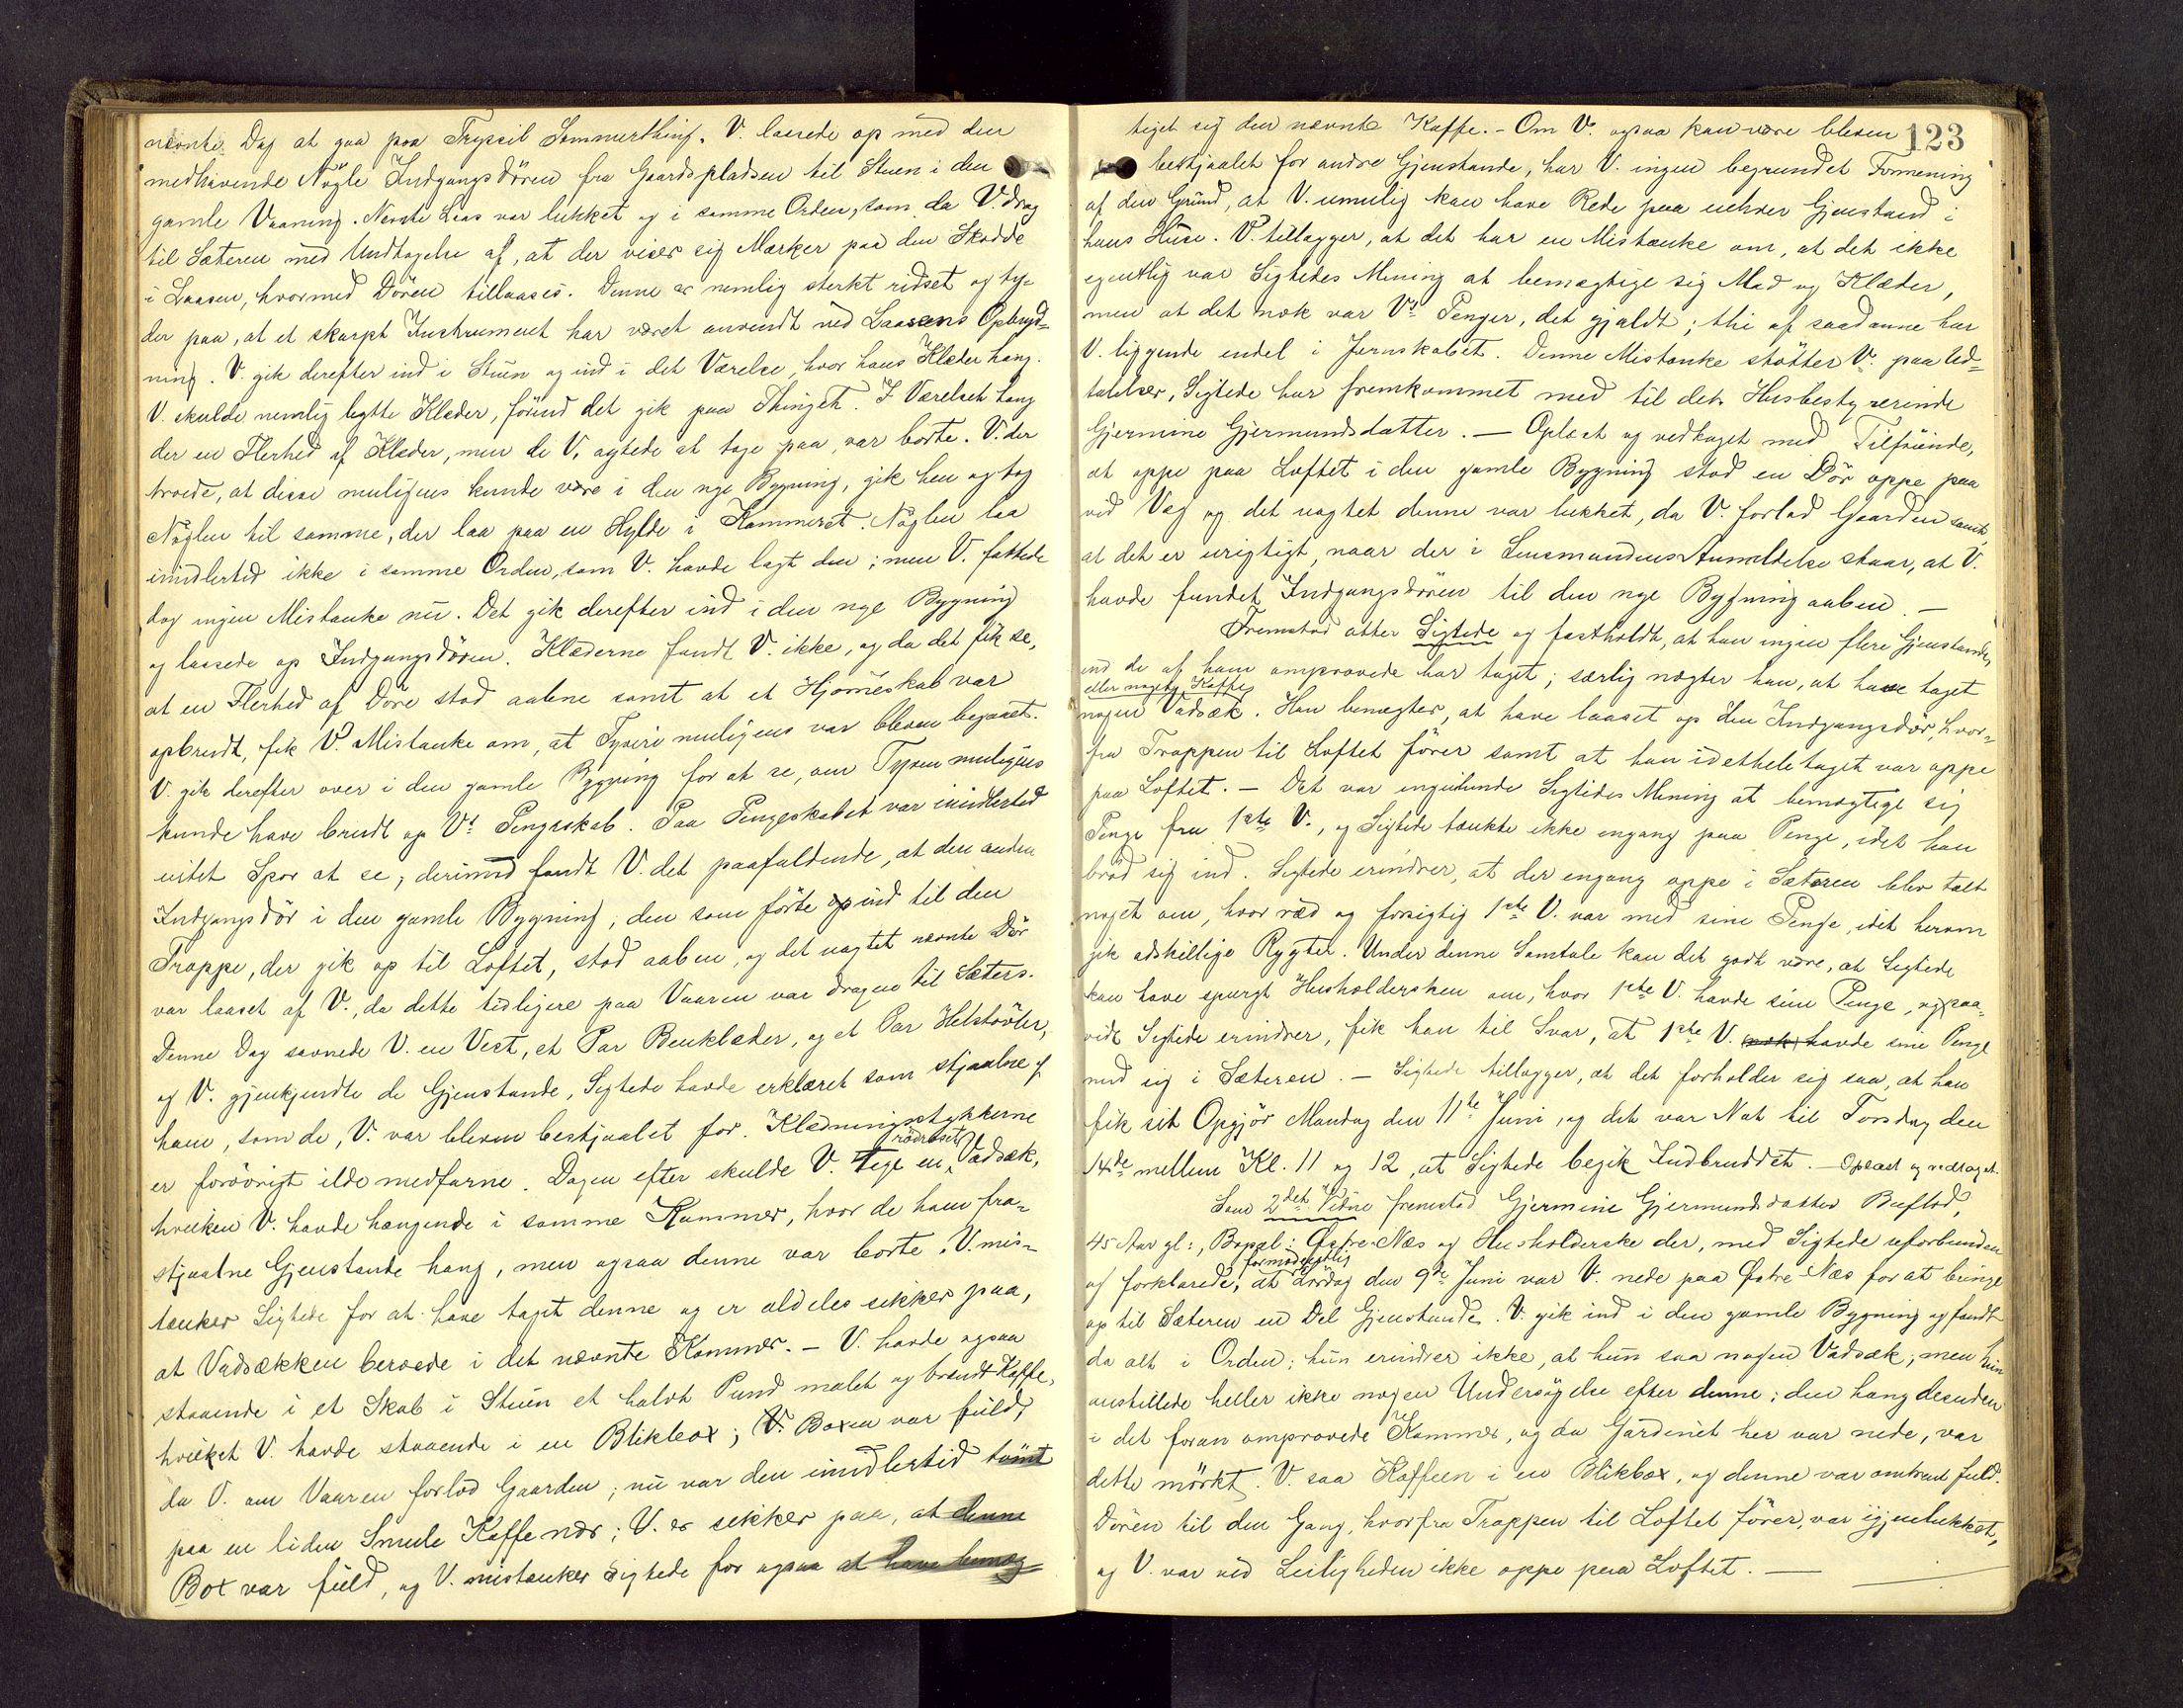 nævnte Dag at gaa paa Trysil Sommerthing. V. laasede op med den
medhavende Nögle Indgangsdören fra Gaardspladsen til Stuen i den
gamle Vaaning. Nævnte Laas var lukket og i samme Orden, som da V. drog
til Sæteren med Undtagelse af, at der viser sig Mærker paa den Skodde
i Laasen, hvormed Dören tillaases. Denne er nemlig sterkt ridset og ty-
der paa, at et skarpt Instrument har været anvendt ved Laasens Opbryd-
ning. V. gik derefter ind i Stuen og ind i det Værelse, hvor hans Klæder hang.
V. skulde nemlig bytte Klæder, förend det gik paa Thinget. I Værelset hang
der en Flerhed af Klæder, men de V. agtede at tage paa, var borte. V. der
troede, at disse muligens kunde være i den nye Bygning, gik hen og tog
Nöglen til samme, der laa paa en Hylde i Kammeret. Nöglen laa
imidlertid ikke i samme Orden, som V. havde lagt den; men V. fattede
dog ingen Mistanke nu. Det gik derefter ind i den nye Bygning
og laasede op Indgangsdören. Klæderne fandt V. ikke, og da det fik se,
at en Flerhed af Döre stod aabne samt at et Hjörneskab var
opbrudt, fik V. Mistanke om, at Tyveri muligens var bleven begaaet.
V. gik derefter over i den gamle Bygning for at se, om Tyven muligens
kunde have brudt op V's Pengeskab. Paa Pengeskabet var imidlertid
intet Spor at se; derimod fandt V. det paafaldende, at den anden
Indgangsdör i den gamle Bygning, den som förte op ind til den
Trappe, der gik op til Loftet, stod aaben, og det uagtet nævnte Dör
var laaset af V., da dette tidligere paa Vaaren var dragen til Sæters.
Denne Dag savnede V. en Vest, et Par Benklæder, og et Par Helstövler,
og V. gjenkjendte de Gjenstande, Sigtede havde erklæret som stjaalne af
ham, som de, V. var bleven bestjaalet for. Klædningsstykkerne
er forövrigt ilde medfarne. Dagen efter skulde V. tage en rödroset Vadsæk,
hvilken V. havde hængende i samme Kammer, hvor de ham fra-
stjaalne Gjenstande hang, men ogsaa denne var borte. V. mis-
tænker Sigtede for at have taget denne og er aldeles sikker paa,
at Vadsækken beroede i det nævnte Kammer. - V. havde ogsaa
staaende i et Skab i Stuen et halvt Pund malet og brændt Kaffe,
hvilket V. havde staaende i en Blikbox; V. Boxen var fuld,
da V. om Vaaren forlod Gaarden; nu var den imidlertid tömt
paa en liden Smule Kaffe nær; V. er sikker paa, at denne
Box var fuld, og V. mistænker Sigtede for ogsaa at have bemæg-
123
tiget sig den nævnte Kaffe. - Om V. ogsaa kan være bleven
bestjaalet for andre Gjenstande, har V. ingen begrundet Formening
af den Grund, at V. umulig kan have Rede paa enhver Gjenstand i
hans Huse. V. tillægger, at det har en Mistanke om, at det ikke
egentlig var Sigtedes Mening at bemægtige sig Mad og Klæder,
men at det nok var V's Penger, det gjaldt; thi af saadanne har
V. liggende endel i Jernskabet. Denne Mistanke stötter V. paa Ud-
talelser, Sigtede har fremkommet med til dets Husbestyrerinde
Gjermine Gjermundsdatter. — Oplæst og vedtaget med Tilföiende,
at oppe paa Loftet i den gamle Bygning stod en Dör oppe paa
vid Væg og det uagtet denne var lukket, da V. forlod Gaarden samt
at det er urigtigt, naar der i Lensmandens Anmeldelse staar, at V.
havde fundet Indgangsdören til den nye Bygning aaben. —
Fremstod atter Sigtede og fastholdt, at han ingen flere Gjenstande,
end de af ham omprovede har taget; særlig nægter han, at have taget
eller noget Kaffe
nogen Vadsæk. Han benægter, at have laaset op den Indgangsdör, hvor-
fra Trappen til Loftet förer samt at han idethele taget var oppe
paa Loftet. — Det var ingenlunde Sigtedes Mening at bemægtige sig
Penge fra 1ste V., og Sigtede tænkte ikke engang paa Penge, idet han
bröd sig ind. Sigtede erindrer, at der engang oppe i Sæteren blev talt
noget om, hvor ræd og forsigtig 1ste V. var med sine Penge, idet herom
gik adskillige Rygter. Under denne Samtale kan det godt være, at Sigtede
kan have spurgt Husholdersken om, hvor 1ste V. havde sine Penge, og saa-
vidt Sigtede erindrer, fik han til Svar, at 1ste V. havde sine Penge
med sig i Sæteren. — Sigtede tillægger, at det forholder sig saa, at han
fik sit Opgjör Mandag den 11te Juni, og det var Nat til Torsdag den
14de mellem Kl. 11 og 12, at Sigtede begik Indbruddet. Oplæst og vedtaget.
Som 2det Vidne fremstod Gjermine Gjermundsdatter
45 Aar gl:, Bopæl: Östre Næs og Husholderske der, med Sigtede uforbunden
formodentlig
og forklarede, at Lördag den 9de Juni var V. nede paa Östre Næs for at bringe
op til Sæteren en Del Gjenstande. V. gik ind i den gamle Bygning og fandt
da alt i Orden; hun erindrer ikke, at hun saa nogen Vadsæk; men hun
anstillede heller ikke nogen Undersögelse efter denne; den hang desuden
i det foran omprovede Kammer, og da Gardinet her var nede, var
dette mörkt. V. saa Kaffeen i en Blikbox, og denne var omtrent fuld.
Dören til den Gang, hvorfra Trappen til Loftet förer, var igjenlukket,
og V. var ved Leiligheden ikke oppe paa Loftet. —